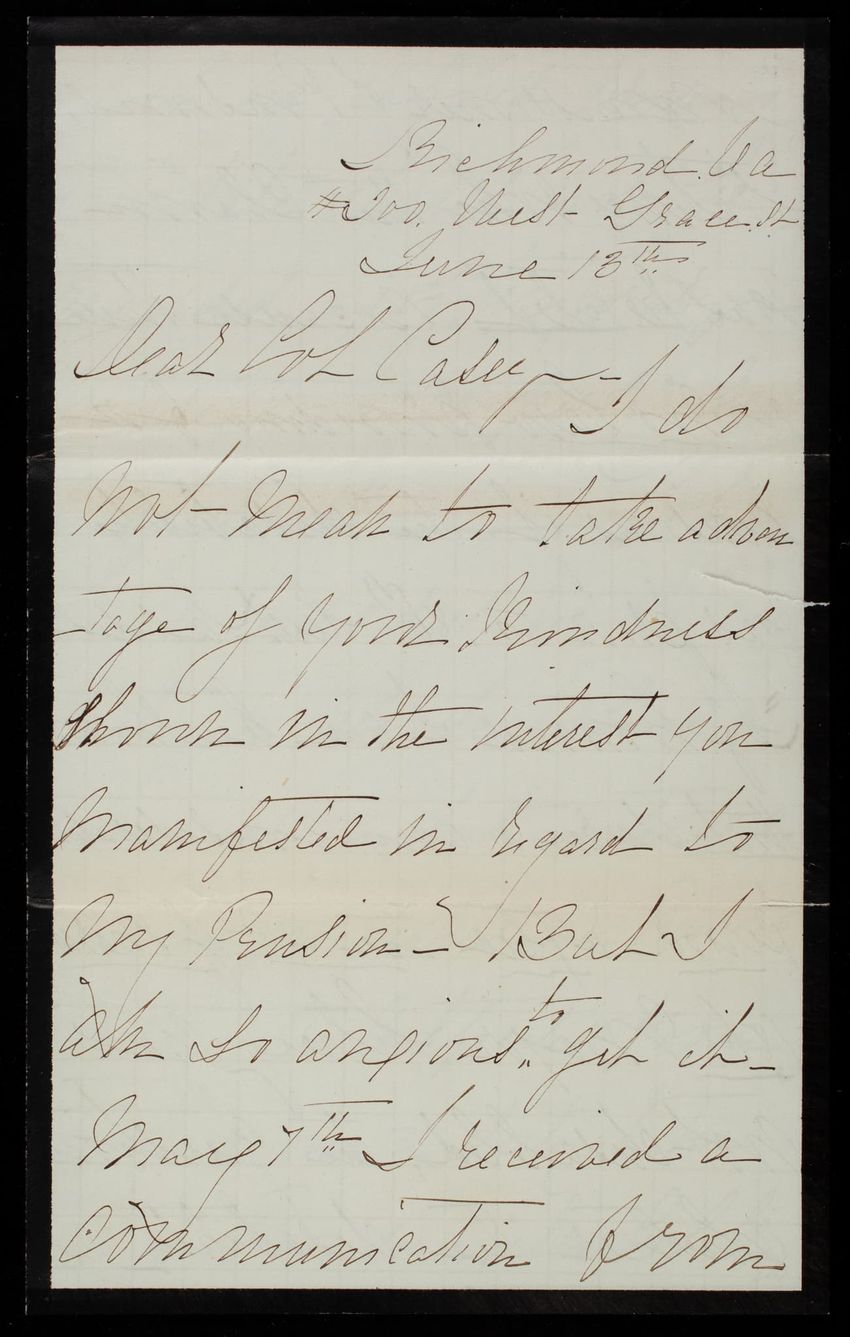 Richmond. Va
# 200. West Grace. St
June 13th
Dear Col Casey - I do
not - mean to take advan
-tage of your kindness
shown in the interest you
manifested in regard to
my Pension - But I
am so anxious to get it -
May 7th I received a
communication from